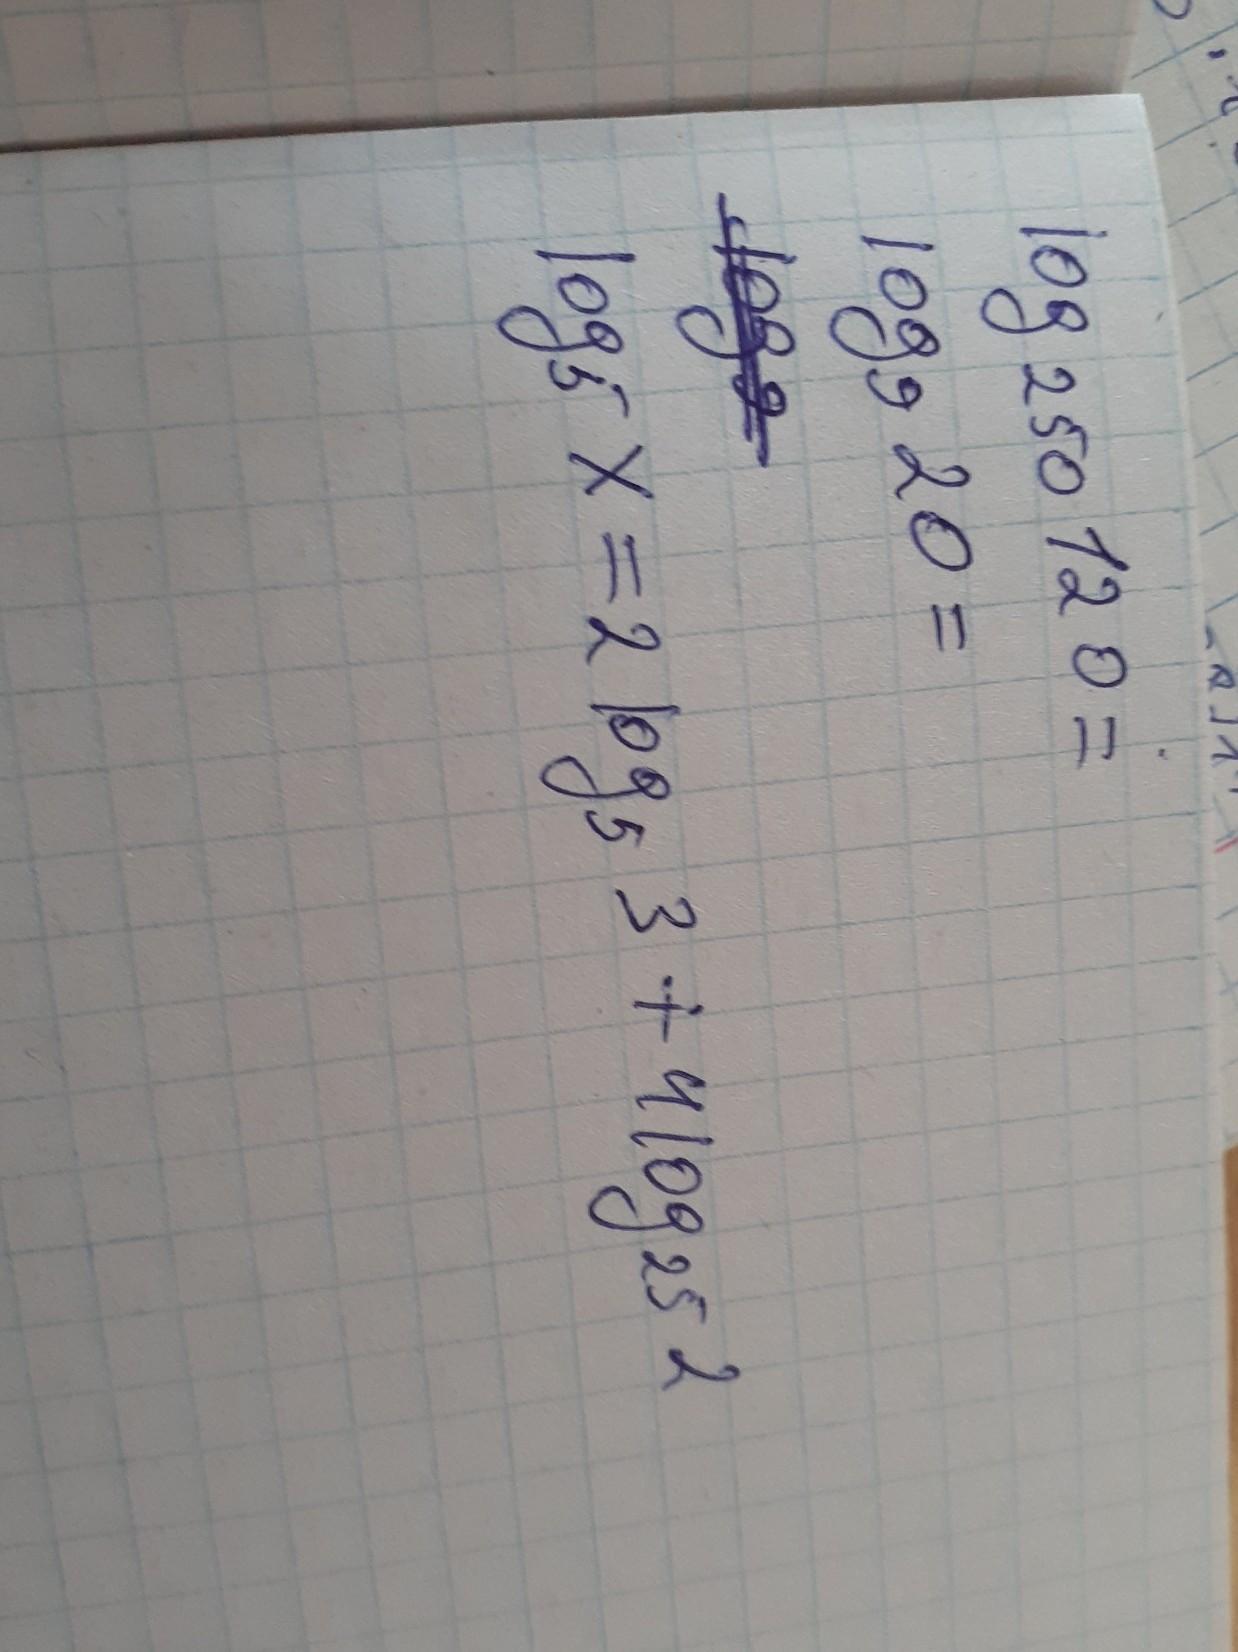 log₂₅₀ 120 =
log₉ 20 =
log₅ x = 2 log₅ 3 + 4 log₂₅ 2